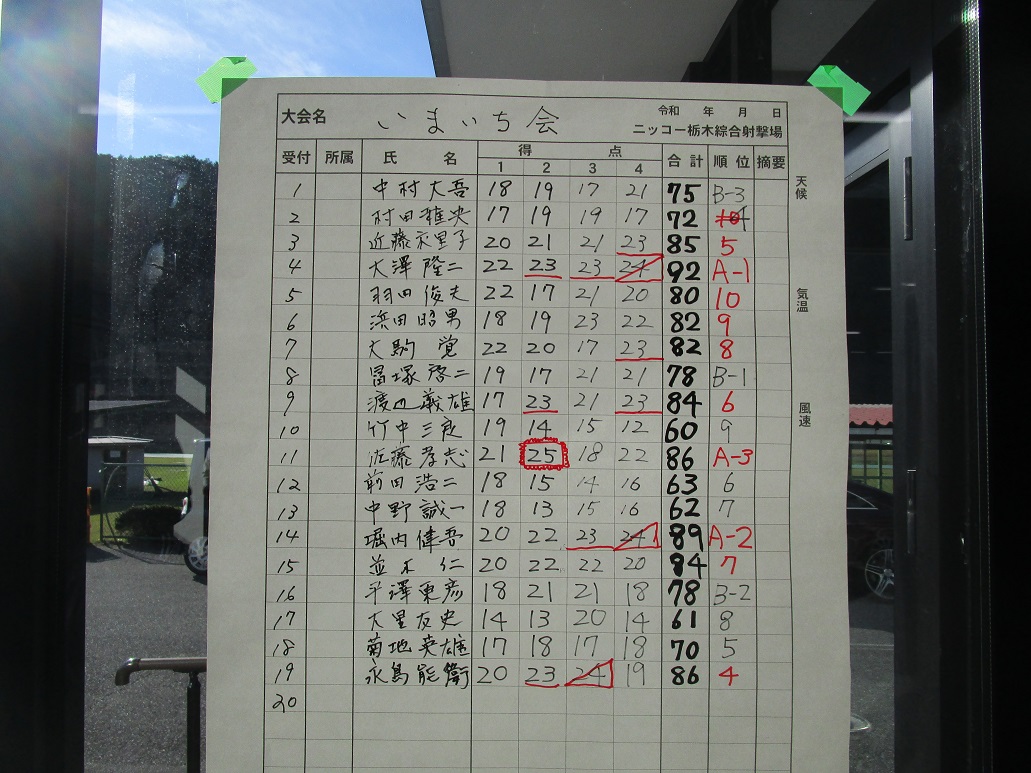 大会名 いまいち会 令和 年 月 日
ニッコー栃木綜合射撃場
受付 所属 氏 名 得 点 合計 順位 摘要
1 2 3 4
天候
気温
風速
1 中村大吾 18 19 17 21 75 B-3
2 村田雅央 17 19 19 17 72 4
3 近藤衣里子 20 21 21 23 85 5
4 大澤隆二 22 23 23 24 92 A-1
5 羽田俊夫 22 17 21 20 80 10
6 浜田昭男 18 19 23 22 82 9
7 大駒 覚 22 20 17 23 82 8
8 冨塚啓二 19 17 21 21 78 B-1
9 渡辺義雄 17 23 21 23 84 6
10 竹中三良 19 14 15 12 60 9
11 佐藤孝志 21 25 18 22 86 A-3
12 前田浩二 18 15 14 16 63 6
13 中野誠一 18 13 15 16 62 7
14 堀内健吾 20 22 23 24 89 A-2
15 並木 仁 20 22 22 20 84 7
16 平澤東彦 18 21 21 18 78 B-2
17 大里友史 14 13 20 14 61 8
18 菊地英雄 17 18 17 18 70 5
19 永島能衛 20 23 24 19 86 4
20